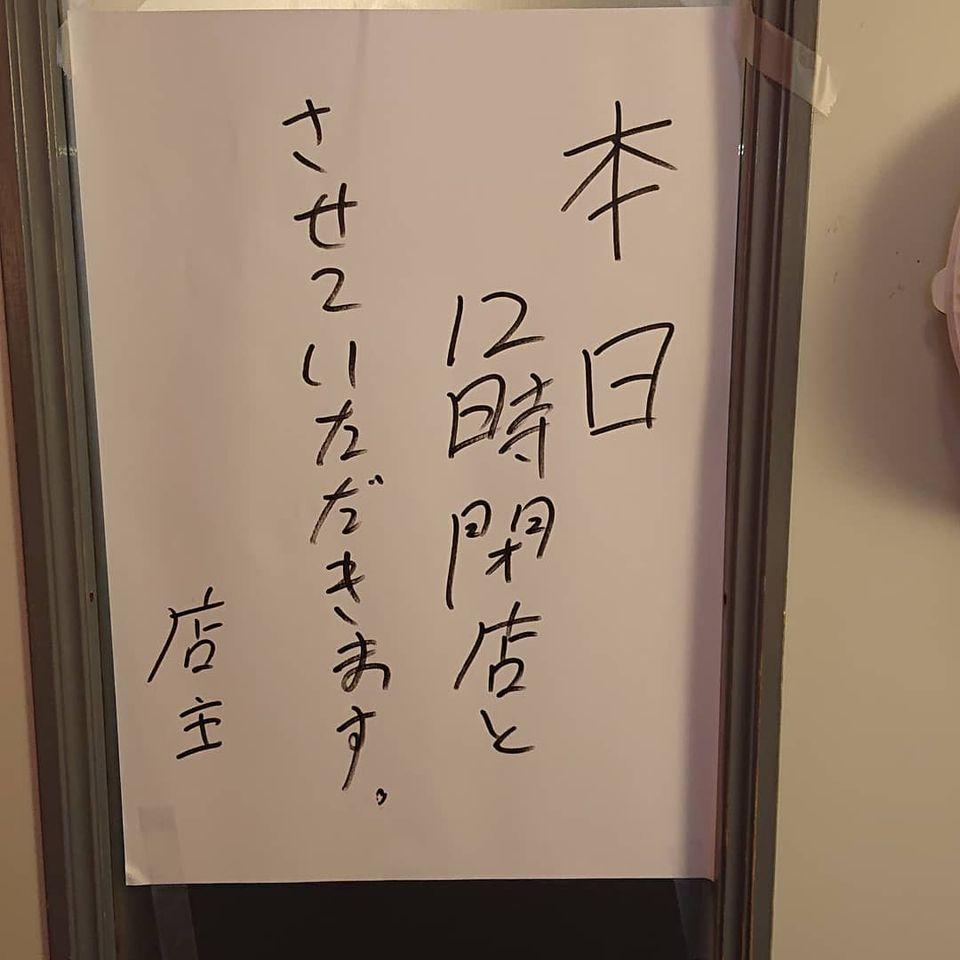 本日
12時閉店と
させていただきます。
店主